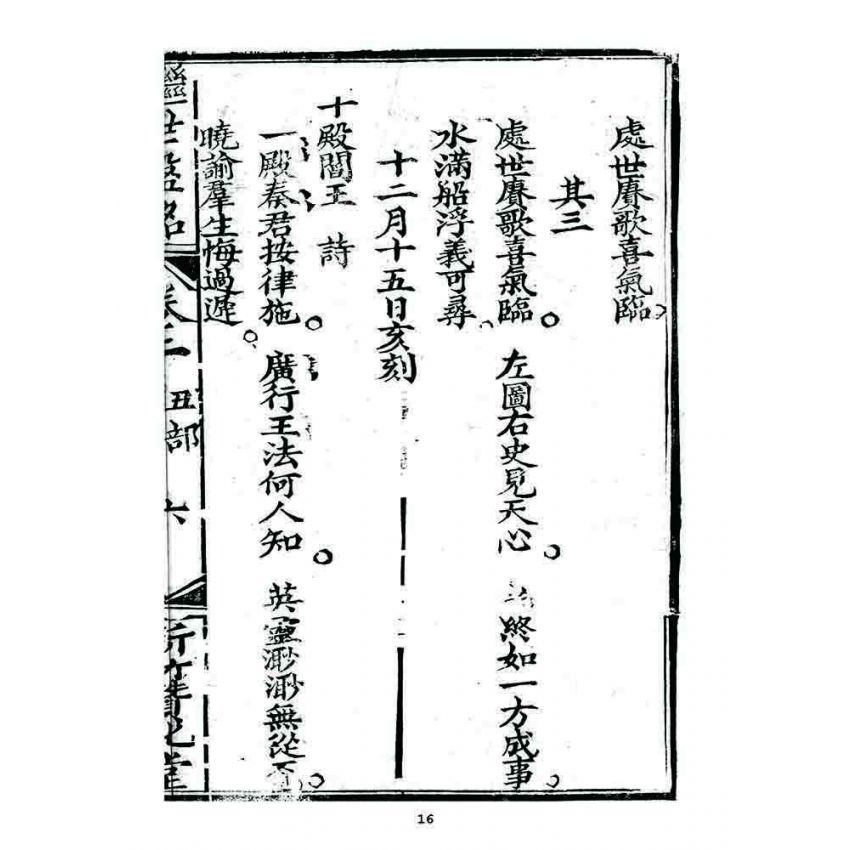 處世賡歌喜氣臨。
其三
處世賡歌喜氣臨。 左圖右史見天心。 終如一方成事。
水滿船浮義可尋。
十二月十五日亥刻
十殿閻王 詩
一殿秦君按律施。 廣行王法何人知。 英靈渺渺無從
曉諭羣生悔過遲。
世盤銘 卷三 丑部 六
16